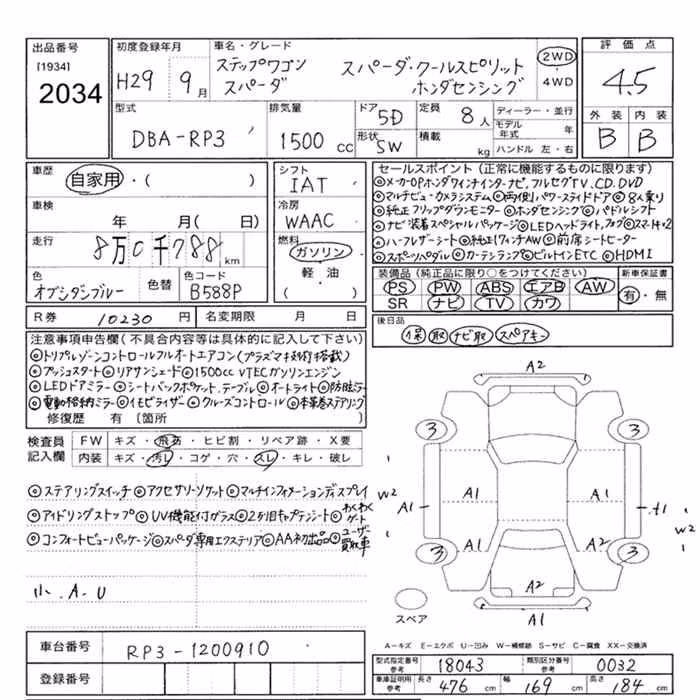 出品番号
[1934]
2034
初度登録年月
H29 9月
車名・グレード
ステップワゴン スパーダ・クールスピリット
スパーダ ホンダセンシング
2WD
・4WD
評価点
4.5
外装 内装
B B
型式
DBA-RP3
排気量
1500 cc
ドア
5D
形状
SW
定員
8人
積載
kg
ディーラー・並行
モデル年式 年
ハンドル 左・右
車歴
自家用・( )
車検
年 月( 日)
走行
8万0千788km
色
オブシダンブルー
色替
色コード
B588P
シフト
IAT
冷房
WAAC
燃料
ガソリン
軽・油
( )
セールスポイント(正常に機能するものに限ります)
◎メーカーOPホンダインターナビ,フルセグTV.CD.DVD
◎マルチビューカメラシステム◎両側パワースライドドア◎8人乗り
◎純正フリップダウンモニター◎ホンダセンシング◎パドルシフト
◎ナビ装着スペシャルパッケージ◎LEDヘッドライト,フォグ◎スマートキー2
◎ハーフレザーシート◎純正17インチAW◎前席シートヒーター
◎スポーツペダル◎カーテンランプ◎ビルトインETC◎HDMI
装備品(純正品に限り○をつけてください)
PS PW ABS エアB AW
SR ナビ TV カワ
新車保証書
有・無
R券 10230円
名変期限 月 日
後日品
保 取 ナビ取 スペアキー
注意事項申告欄(不具合内容等は具体的に記入して下さい)
◎トリプルゾーンコントロールフルオートエアコン(プラズマ技術搭載)
◎プッシュスタート◎リアサンシェード◎1500cc VTECガソリンエンジン
◎LEDドアミラー◎シートバックポケット.テーブル◎オートライト◎防眩ミラー
◎電動格納ミラー◎イモビライザー◎クルーズコントロール◎本革巻ステアリング
修復歴 有 〔箇所 〕
検査員
記入欄
FW キズ・飛石・ヒビ割・リペア跡・X要
内装 キズ・汚レ・コゲ・穴・スレ・キレ・破レ
◎ステアリングスイッチ◎アクセサリーソケット◎マルチインフォメーションディスプレイ
◎アイドリングストップ◎UV機能付ガラス◎2列目キャプテンシート◎わくわくゲート
◎コンフォートビューパッケージ◎スパーダ専用エクステリア◎AA初出品◎ユーザー買取車
小.A.U
A2
3 3
W2 A1 A1 A1 A1 W2
3 A1 A1 3
A2
A1
スペア
A-キズ E-エクボ U-凹み W-補修跡 S-サビ C-腐食 XX-交換済
車台番号
RP3-1200910
登録番号
型式指定番号参考 18043
類別区分番号参考 0032
車庫証明用参考 長さ 476cm 幅 169cm 高さ 184cm